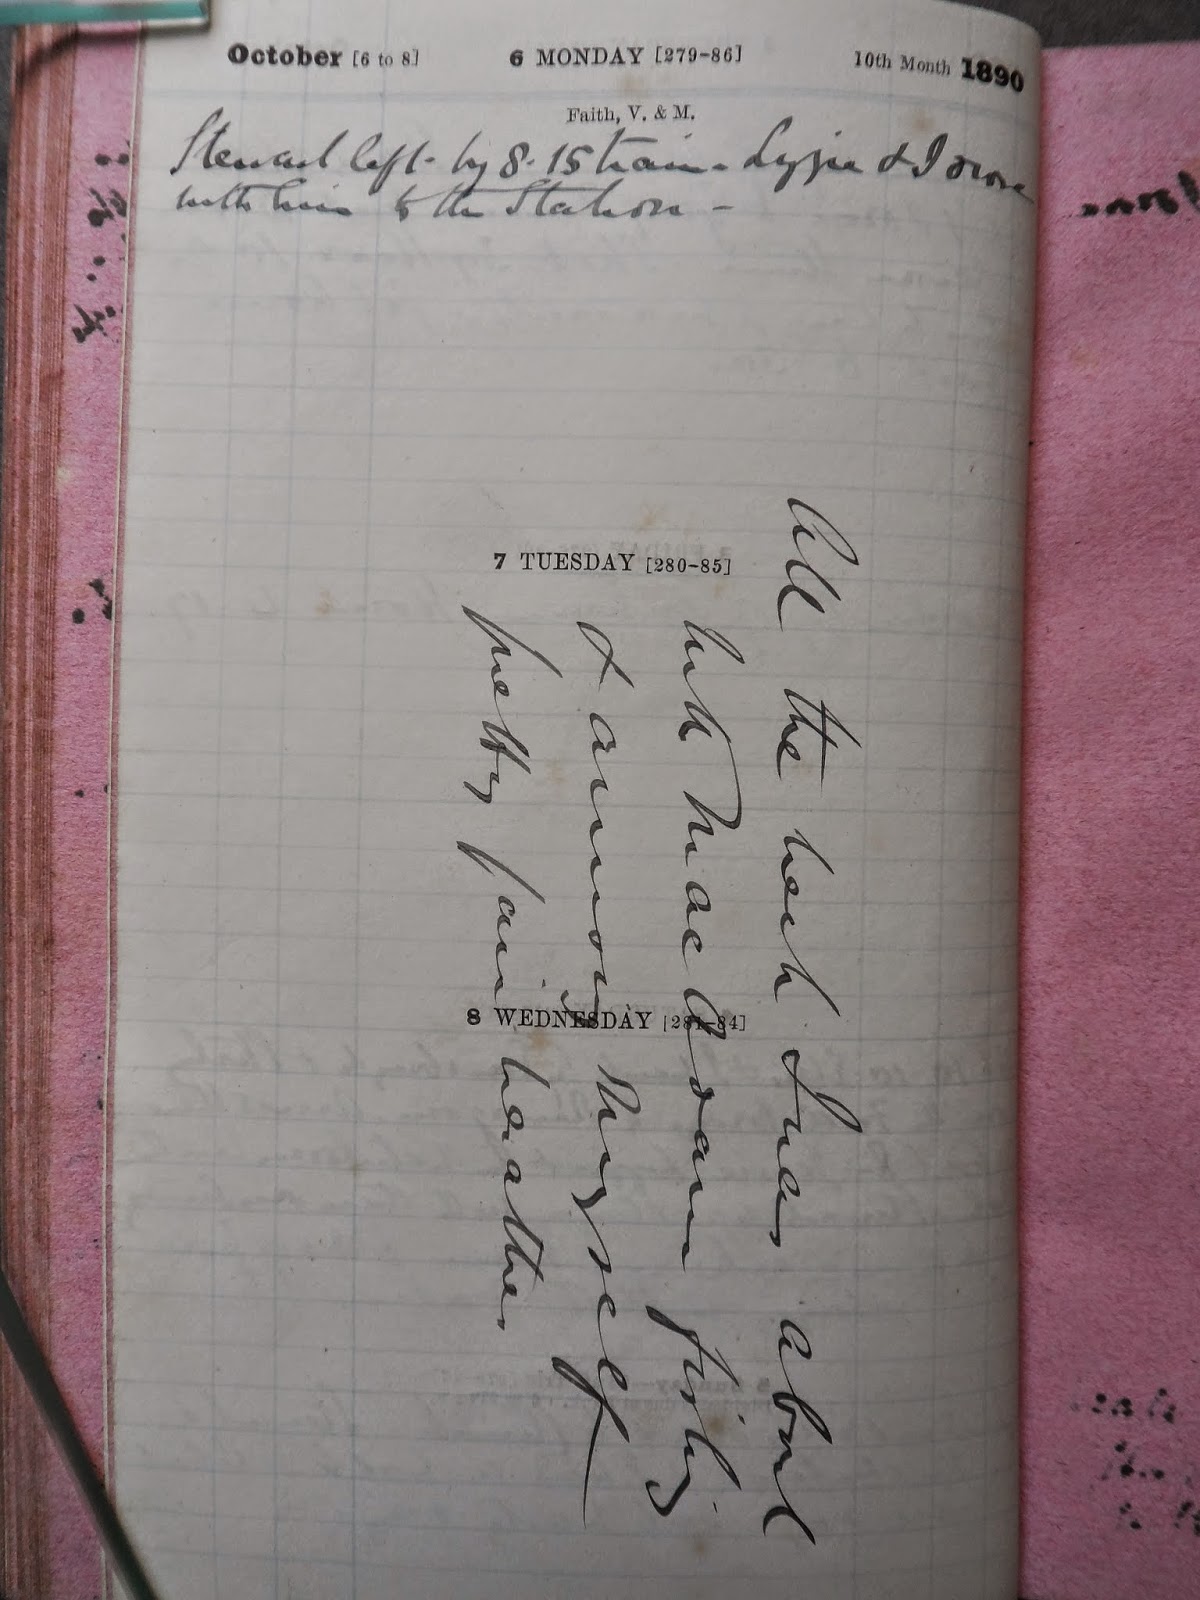 October [6 to 8] 6 MONDAY [279-86] 10th Month 1890
Faith, V. & M.
Stewart left by 8.15 train - Lizzie & I drove
with him to the Station -
7 TUESDAY [280-85]
8 WEDNESDAY [281-84]
All the week I was about
with MacAdam fishing
& amusing myself
pretty fair weather